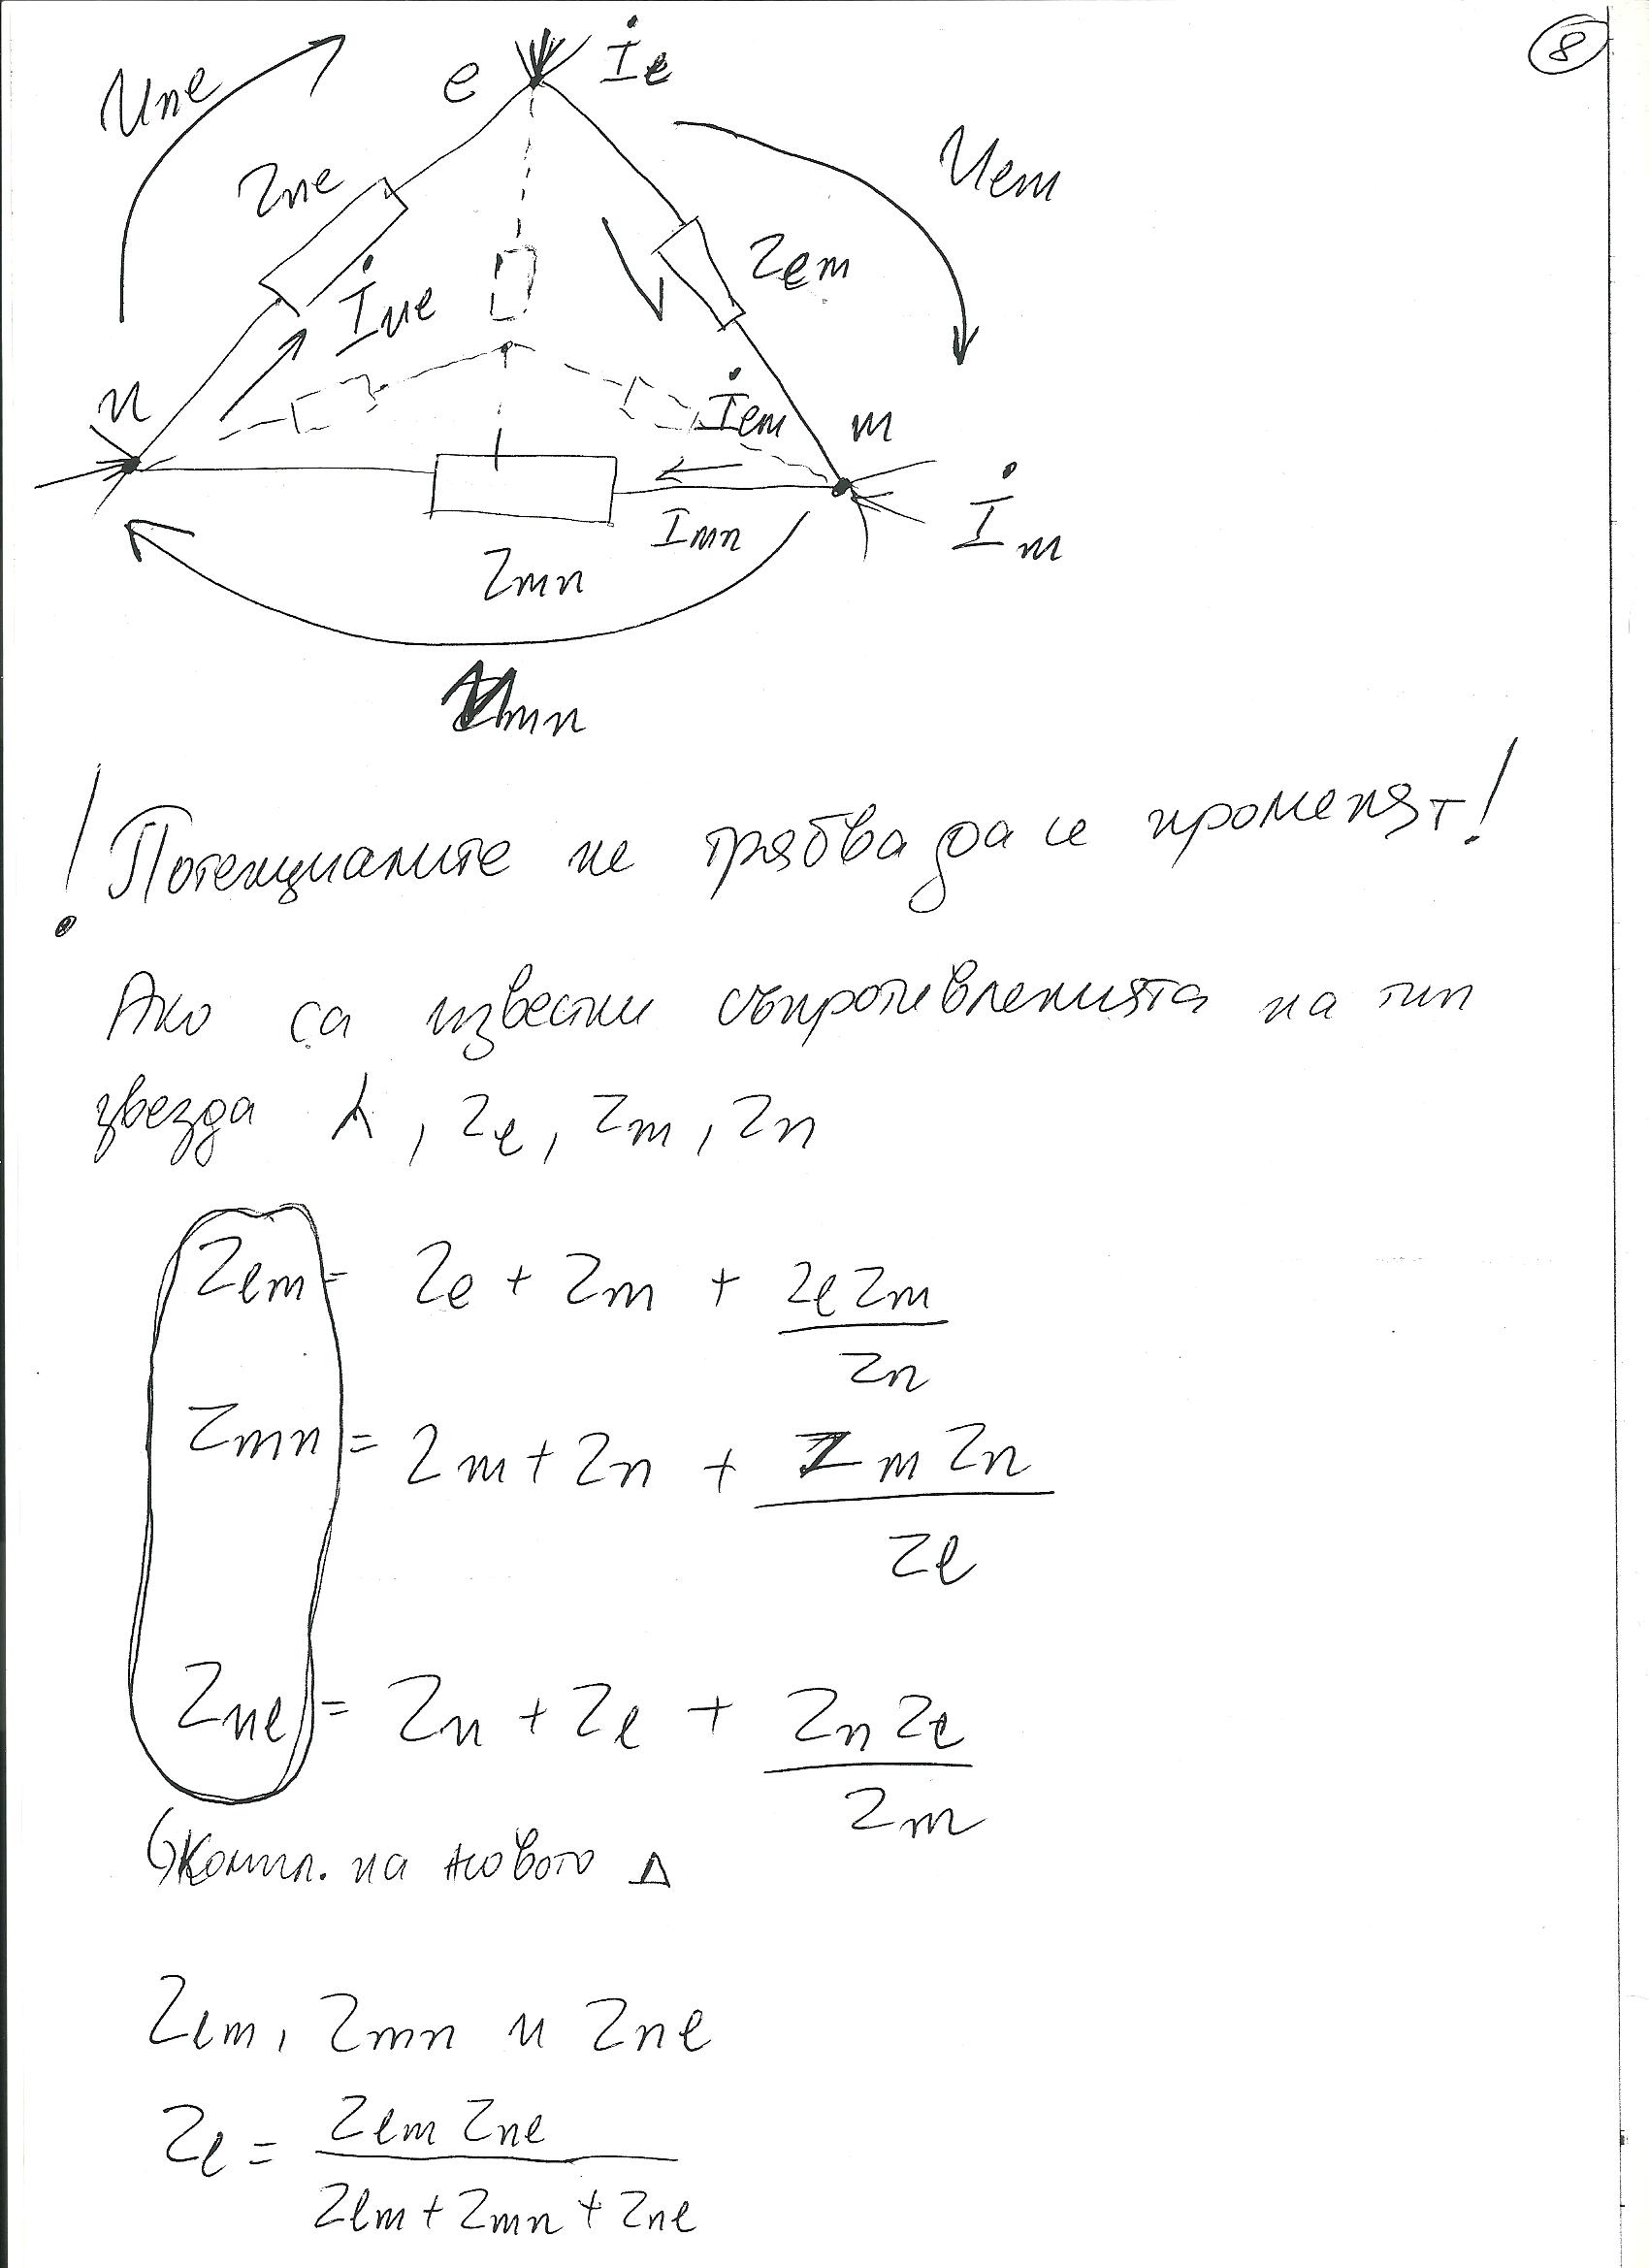 8
Une
e
İe
Uem
Zne
Zem
İne
n
İem
m
Imn
İm
Zmn
Umn
! Потенциалите не трябва да се променят!
Ако са известни съпротивленията на тип
звезда ⅄, Ze, Zm, Zn
Zem = Ze + Zm + Ze Zm / Zn
Zmn = Zm + Zn + Zm Zn / Ze
Zne = Zn + Ze + Zn Ze / Zm
Компл. на новото Δ
Zem, Zmn и Zne
Ze = Zem Zne / Zem + Zmn + Zne